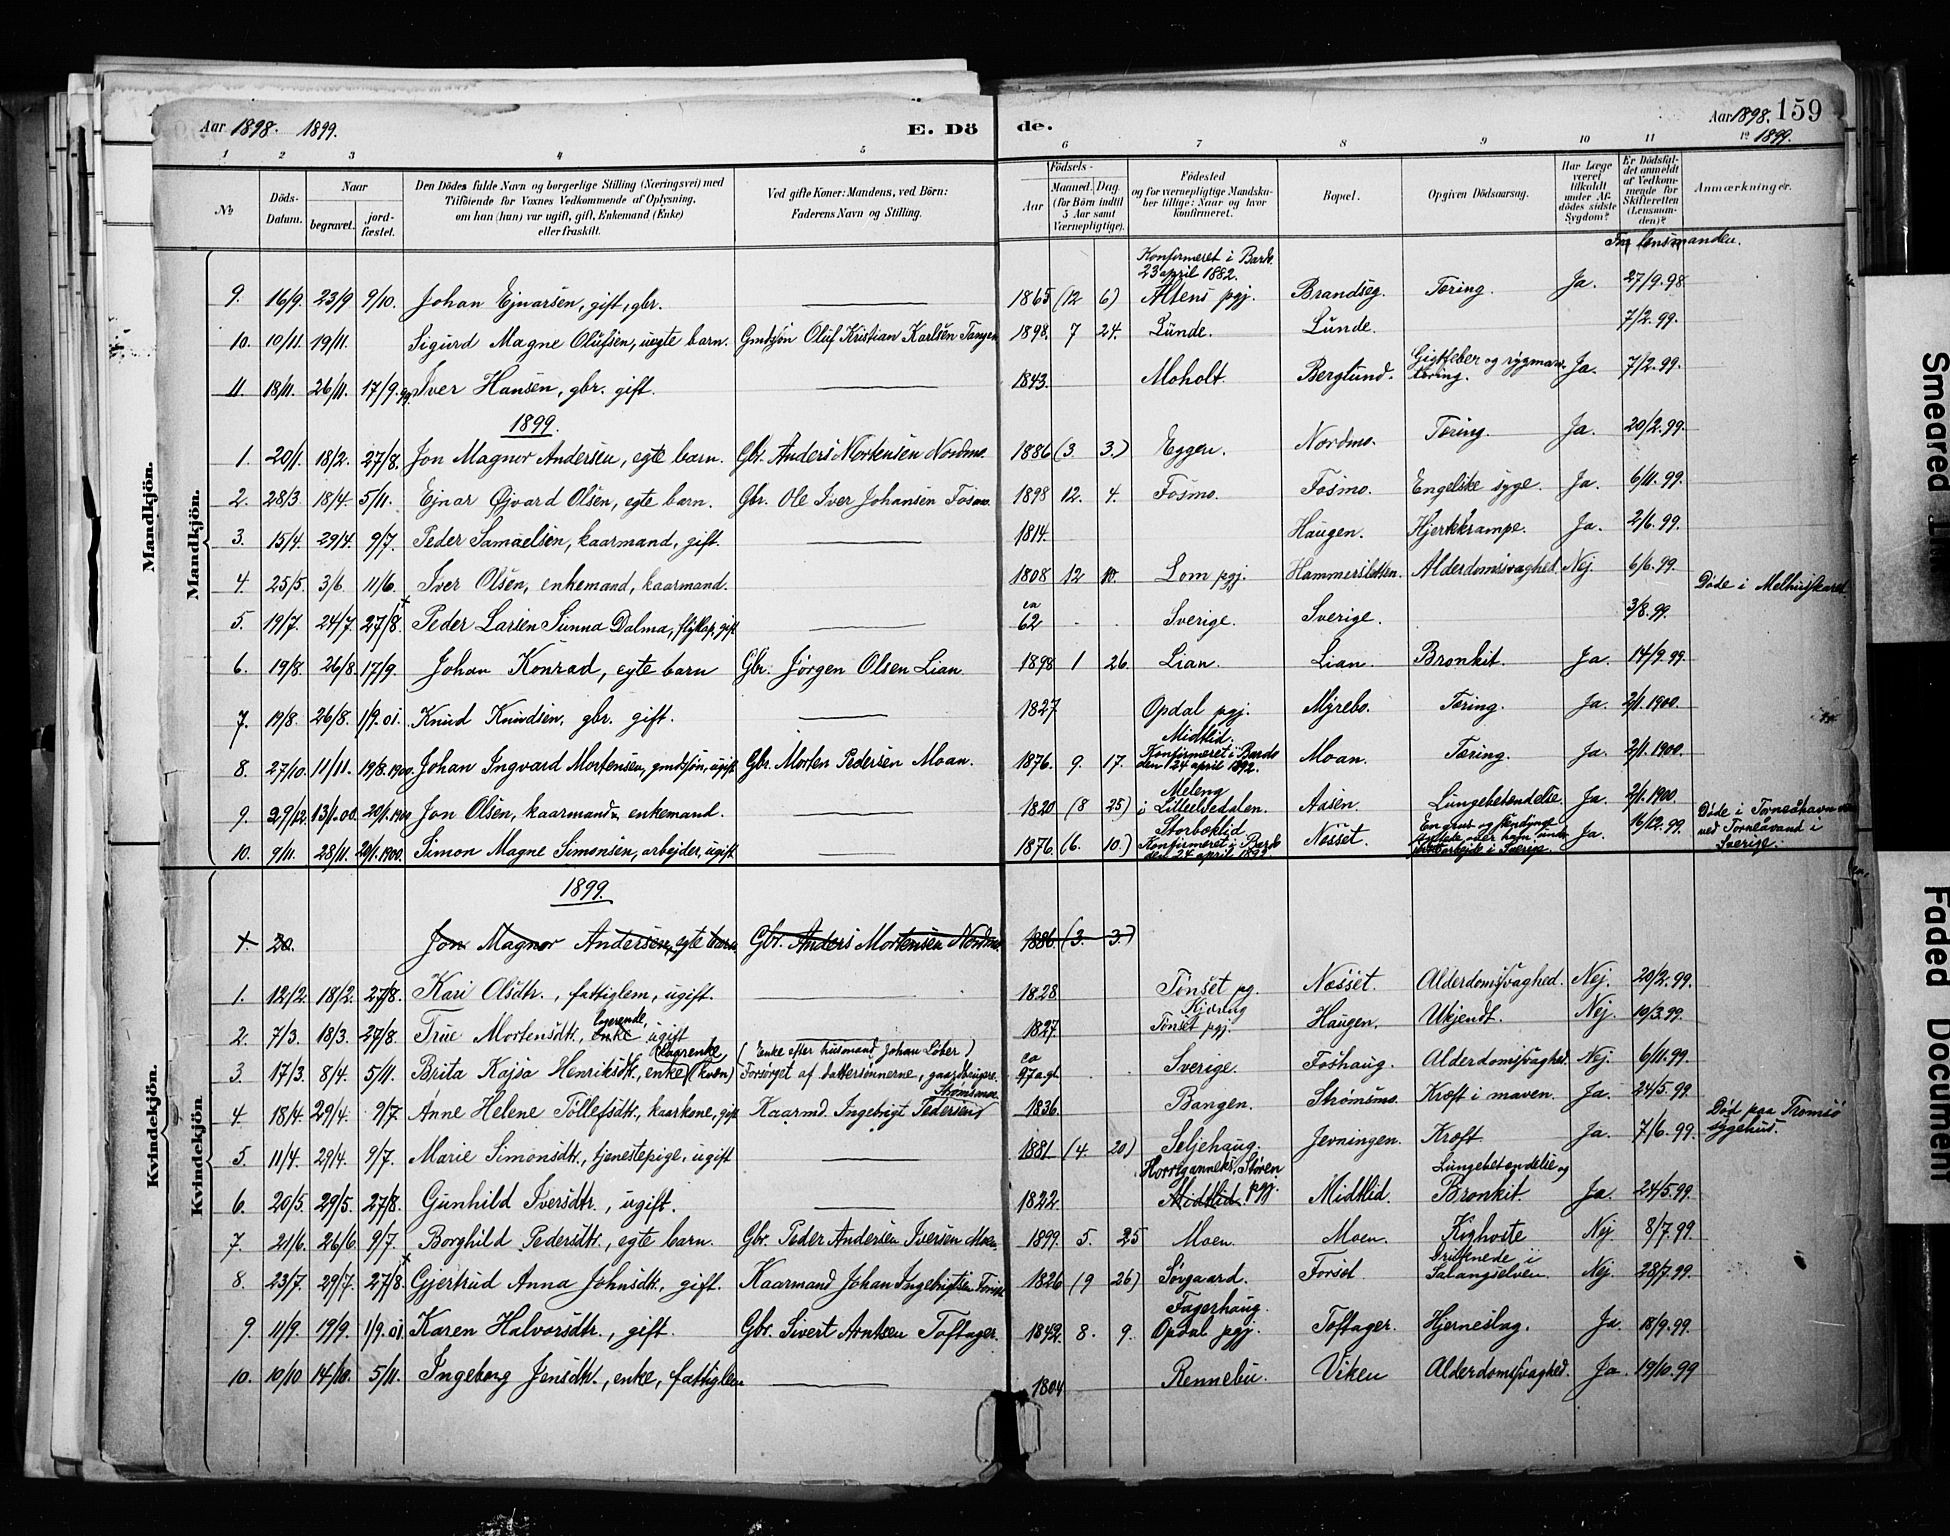 Aar 1898. 1899. E. Dö de. Aar 1898. 159
1899.
1 2 3 4 5 6 7 8 9 10 11 12
№ Döds-Datum. Naar begravet. jord-fæstet. Den Dödes fulde Navn og borgerlige Stilling (Næringsvei) med Tilföiende for Voxnes Vedkommende af Oplysning, om han (hun) var ugift, gift, Enkemand (Enke) eller fraskilt. Ved gifte Koner: Mandens, ved Börn: Faderens Navn og Stilling. Födsels- Aar Maaned. Dag (for Börn indtil 5 Aar samt Værnepligtige). Födested og for værnepligtige Mandskaber tillige: Naar og hvor konfirmeret. Bopæl. Opgiven Dödsaarsag. Har Læge været tilkaldt under Afdödes sidste Sygdom? Er Dödsfaldet anmeldt af Vedkommende for Skifteretten (Lensmanden)? Anmærkninger.
Mandkjön.
Mandkjön.
For lensmanden.
Konfirmeret i Bardo
23 april 1882.
9. 16/9. 23/9 9/10. Johan Ejnarsen, gift, gbr. 1865 (12 6) Altens pgj. Brandseg. Tæring. Ja. 27/9.98
10. 10/11. 19/11. Sigurd Magne Olufsen, uegte barn. Gmdsjøn Oluf Kristian Karlsen Tangen 1898. 7 24. Lunde. Lunde. 7/2.99.
11. 18/11. 26/11. 17/9.99. Iver Hansen, gbr. gift. 1843. Moholt. Berglund. Gigtfeber og rygmarvtæring. Ja. 7/2.99.
1899.
1. 20/1. 18/2. 27/8. Jon Magnor Andersen, egte barn. Gbr. Anders Mortensen Nordmo. 1886 (3. 3.) Eggen. Nordmo. Tæring. Ja. 20/2.99.
2. 28/3 18/4. 5/11. Ejnar Øjvard Olsen, egte barn. Gbr. Ole Iver Johansen Fosmo. 1898 12. 4. Fosmo. Fosmo. Engelske syge. Ja. 6/11.99.
3. 15/4. 29/4. 9/7. Peder Samuelsen, kaarmand, gift. 1814. Haugen. Hjertekrampe. Ja. 2/6.99.
4. 25/5. 3/6. 11/6. Iver Olsen, enkemand, kaarmand. 1808 12 10. Lom pgj. Hammersletten. Alderdomssvaghed. Nej. 6/6.99.
Døde i Melhuskaret
5. 19/7. 24/7. 27/8. Peder Larsen Sunna Dalma, flytlap, gift ca 62 Sverige. Sverige. 3/8.99.
6. 19/8. 26/8. 17/9. Johan Konrad, egte barn Gbr. Jörgen Olsen Lian. 1898 1 26. Lian. Lian. Bronkit. Ja. 14/9.99.
7. 19/8. 26/8. 1/9.01. Knud Knudsen, gbr. gift. 1827 Opdal pgj. Myrebo. Tæring. Ja. 2/1.1900.
8. 27/10. 11/11. 19/8.1900. Johan Ingvard Mortensen, gmdsjøn, ugift Gbr. Morten Pedersen Moan. 1876. 9. 17. Midtlid. Konfirmeret i Bardo den 24 april 1892. Moan. Tæring. Ja. 2/1.1900.
9. 29/12. 13/1.00. 20/1.1900 Jon Olsen, kaarmand, enkemand. 1820 (8 25) Meleng i Lilleelvedalen. Aasen. Lungebetendelse. Ja. 2/1.1900.
10. 9/11. 28/11. 20/1.1900. Simon Magne Simonsen, arbejder, ugift 1876. (6. 10.) Storboklid Konfirmeret i Bardo den 24 april 1892 Nösset. En grus og stendynge under arbejde i Sverige. Ja. 16/12.99. Døde i Torneåhavn ved Torneåvand i Sverige.
Kvindekjön.
Kvindekjön.
1899.
20. Jon Magnor Andersen, egte barn Gbr. Anders Mortensen Nordmo. 1886. (3. 3.)
1. 12/2. 18/2. 27/8. Kari Olsdtr., fattiglem, ugift. 1828 Tönset pg. Nösset. Alderdomssvaghed. Nej. 20/2.99.
2. 7/3. 18/3. 27/8. True Mortensdtr., enke logerende, ugift 1827 Kjörlug Tönset pgj. Haugen. Ukjendt. Nej. 19/3.99.
3. 17/3. 8/4. 5/11. Brita Kajsa Henriksdtr., enke (kvæn) kaarenke, (Enke efter husmand Johan Löber) Forsørget af dattersønnerne, gaardbrugere Strømsmo. ca 97 agt. Sverige. Foshaug. Alderdomssvaghed. Nej. 6/11.99.
4. 18/4. 29/4. 9/7. Anne Helene Tollefsdtr., kaarkone, gift Kaarmd. Ingebrigt Pedersen 1836. Bangen. Strömsmo. Kræft i maven. Ja. 24/5.99.
5. 11/4. 29/4. 9/7. Marie Simonsdtr., tjenestepige, ugift 1881 (4. 20) Seljehaug. Jevningen. Kræft. Ja. 7/6.99. Död paa Tromsö sygehus.
6. 20/5. 29/5. 27/8. Gunhild Iversdtr., ugift. 1822. Midtlid. Stören pgj. Midtlid. Lungebetendelse og Bronkit Ja. 24/5.99.
7. 21/6. 26/6 9/7. Borghild Pedersdtr., egte barn. Gbr. Peder Andersen Iversen Moen. 1899. 5. 25 Moen. Moen. Kighoste Nej. 8/7.99.
8. 23/7. 29/7. 27/8. Gjertrud Anna Johnsdtr., gift. Kaarmand Johan Ingebrigtsen 1826 (9 26) Sörgaard. Forsöt. Druknede i Salangselven. Nej. 28/7.99.
9. 11/9. 19/9. 1/9.01. Karen Halvorsdtr., gift. Gbr. Sivert Arntsen Toftager. 1842. 8. 9. Fagerhaug. Opdal pgj. Toftager. Hjerneslag. Ja. 18/9.99.
10. 10/10 14/10. 5/11. Ingeborg Jensdtr., enke, fattiglem 1804 Rennebu. Viken Alderdomssvaghed. Ja. 19/10.99
Smeared
Faded Document